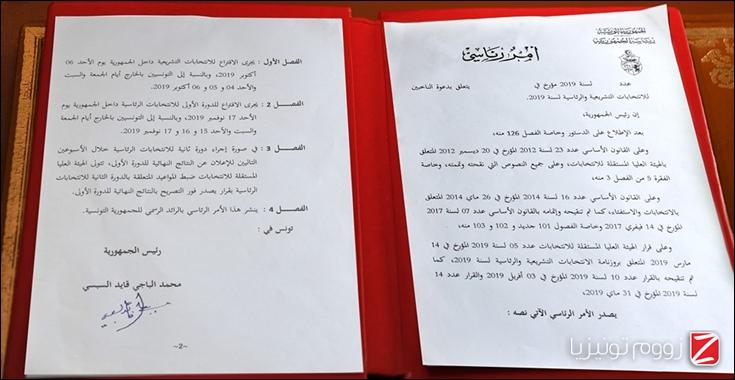 الجمهورية التونسية
رئاسة الجمهورية
أمر رئاسي
عدد لسنة 2019 مؤرخ في يتعلق بدعوة الناخبين
للانتخابات التشريعية والرئاسية لسنة 2019.
إن رئيس الجمهورية،
بعد الإطلاع على الدستور وخاصة الفصل 126 منه،
وعلى القانون الأساسي عدد 23 لسنة 2012 المؤرخ في 20 ديسمبر 2012 المتعلق
بالهيئة العليا المستقلة للانتخابات، وعلى جميع النصوص التي نقحته وتممته، وخاصة
الفقرة 5 من الفصل 3 منه،
وعلى القانون الأساسي عدد 16 لسنة 2014 المؤرخ في 26 ماي 2014 المتعلق
بالانتخابات والاستفتاء، كما تم تنقيحه وإتمامه بالقانون الأساسي عدد 07 لسنة 2017
المؤرخ في 14 فيفري 2017 وخاصة الفصول 101 جديد و 102 و 103 منه،
وعلى قرار الهيئة العليا المستقلة للانتخابات عدد 05 لسنة 2019 المؤرخ في 14
مارس 2019 المتعلق بروزنامة الانتخابات التشريعية والرئاسية لسنة 2019، كما
تم تنقيحه بالقرار عدد 10 لسنة 2019 المؤرخ في 03 أفريل 2019 والقرار عدد 14
لسنة 2019 المؤرخ في 31 ماي 2019،
يصدر الأمر الرئاسي الآتي نصه :
الفصل الأول : يجرى الاقتراع للانتخابات التشريعية داخل الجمهورية يوم الأحد 06
أكتوبر 2019، وبالنسبة إلى التونسيين بالخارج أيام الجمعة والسبت
والأحد 04 و 05 و 06 أكتوبر 2019.
الفصل 2 : يجرى الاقتراع للدورة الأولى للانتخابات الرئاسية داخل الجمهورية يوم
الأحد 17 نوفمبر 2019، وبالنسبة إلى التونسيين بالخارج أيام الجمعة
والسبت والأحد 15 و 16 و 17 نوفمبر 2019.
الفصل 3 : في صورة إجراء دورة ثانية للانتخابات الرئاسية خلال الأسبوعين
التاليين للإعلان عن النتائج النهائية للدورة الأولى، تتولى الهيئة العليا
المستقلة للانتخابات ضبط المواعيد المتعلقة بالدورة الثانية للانتخابات
الرئاسية بقرار يصدر فور التصريح بالنتائج النهائية للدورة الأولى.
الفصل 4 : ينشر هذا الأمر الرئاسي بالرائد الرسمي للجمهورية التونسية.
تونس في :
رئيس الجمهورية
محمد الباجي قايد السبسي
~2~
زووم تونيزيا Z